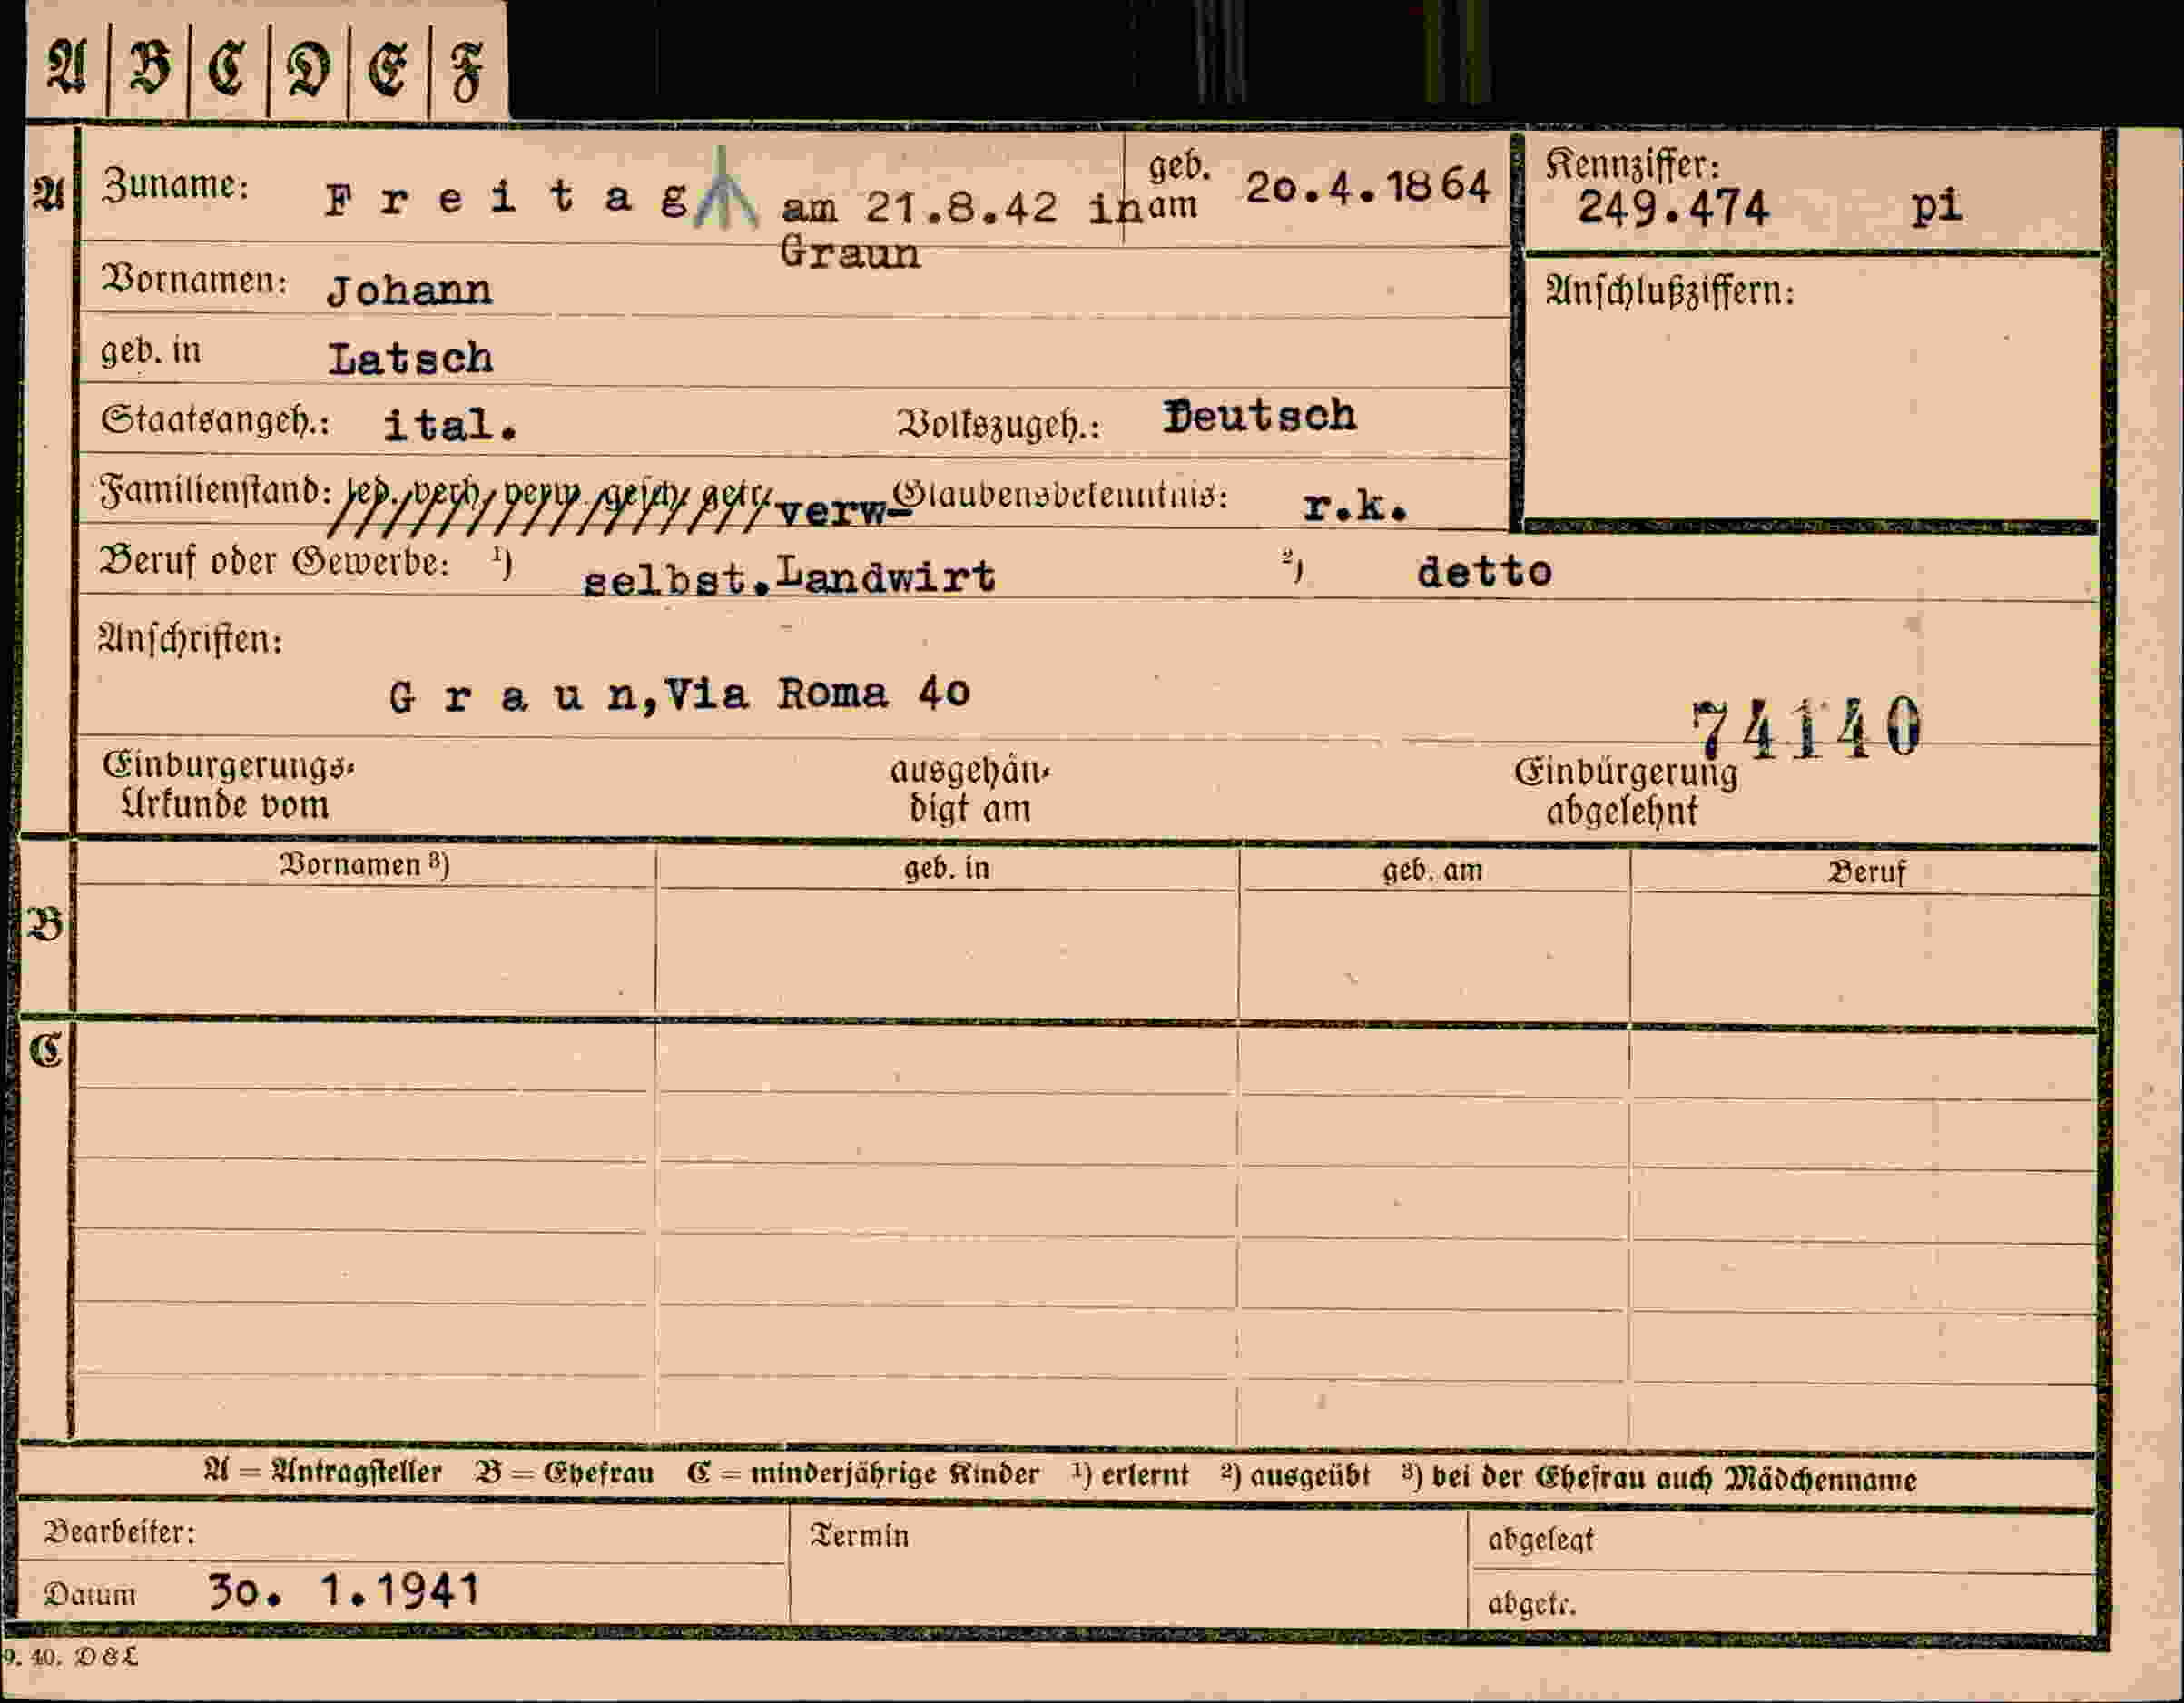 A B C D E F
A Zuname: Freitag am 21.8.42 in geb. am 20.4.1864 Kennziffer: 249.474 pi
Graun
Vornamen: Johann Anschlußziffern:
geb. in Latsch
Staatsangeh.: ital. Volkszugeh.: Deutsch
Familienstand: led. verh. verw. gesch. getr. verw- Glaubensbekenntnis: r.k.
Beruf oder Gewerbe: ¹) selbst.Landwirt ²) detto
Anschriften:
Graun,Via Roma 40
74140
Einbürgerungs-
Urkunde vom
ausgehän-
digt am
Einbürgerung
abgelehnt
B Vornamen ³) geb. in geb. am Beruf
C
A = Antragsteller B = Ehefrau C = minderjährige Kinder ¹) erlernt ²) ausgeübt ³) bei der Ehefrau auch Mädchenname
Bearbeiter: Termin abgelegt
Datum 30. 1.1941 abgetr.
9. 40. D&L